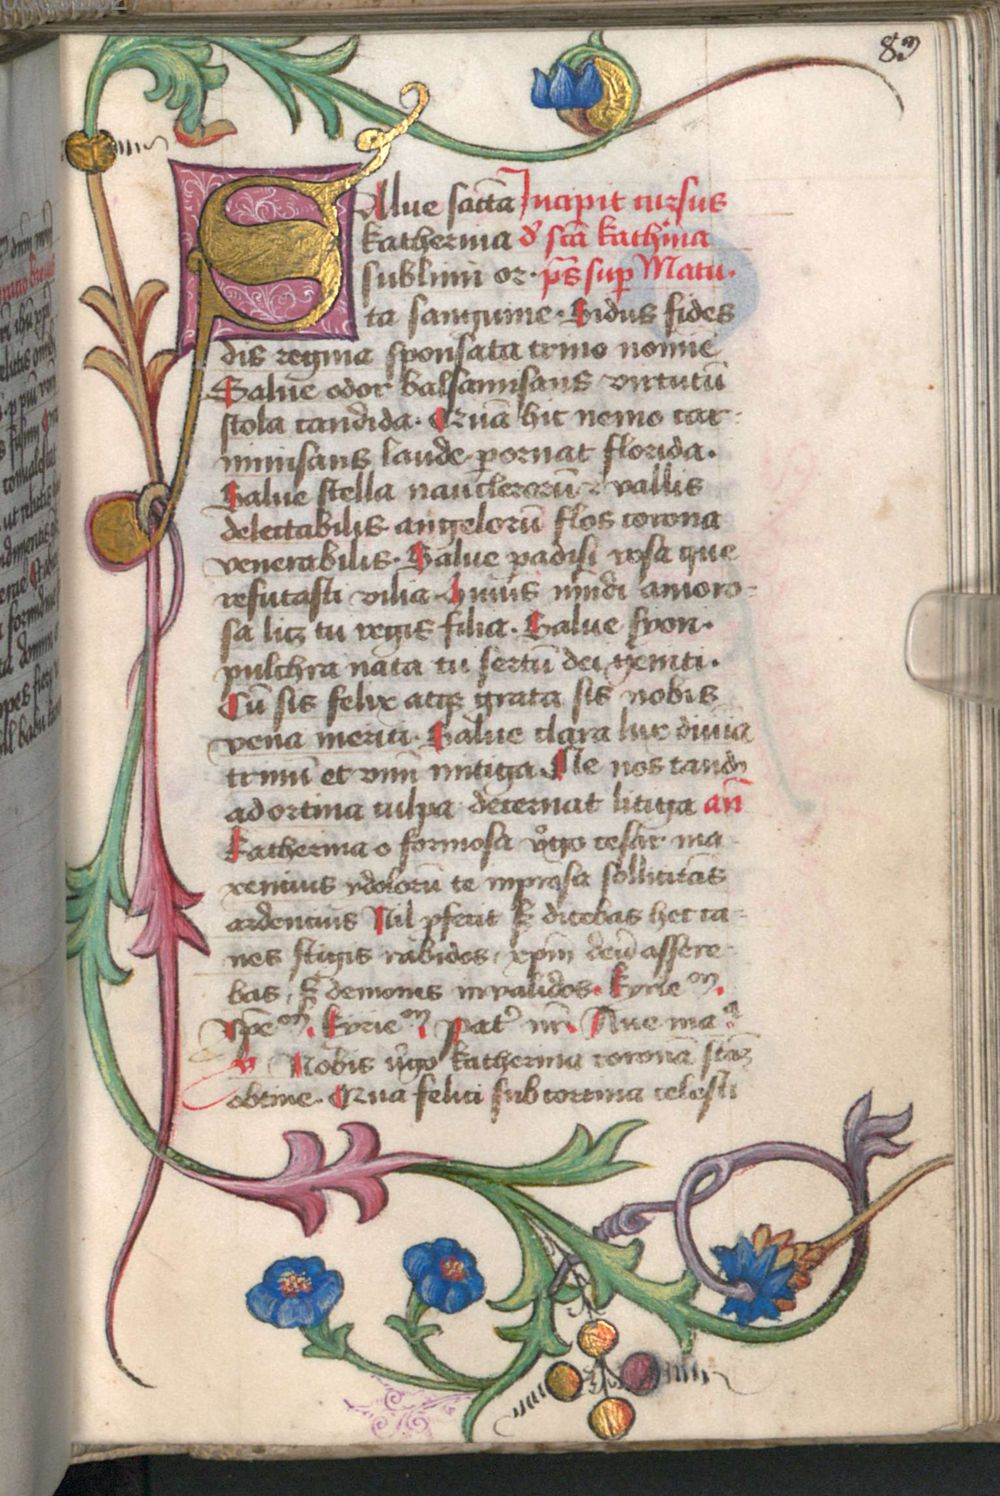 83
Salue sc̄ta Incipit cursus
katherina d̓ scā kathīna
sublimi or· p̄s̄ sup̱ Matu·
ta sanguine· Sidus fides
dis regina sponsata trino noīe
Salue odor balsamisans virtutū
stola candida· Quā hic nemo car-
minisans laude pornat florida·
Salue stella nauclerorū vallis
delectabilis angelorū flos corona
venerabilis· Salue padisi rosa que
refutasti vilia· Huius mūdi amoro-
sa licꝫ tu regis filia· Salue syon·
pulchra nata tu sertū dei
Cū sis felix atqꝫ grata sis nobis
vena Salue clara lux diuīa
trinū et vnū mitiga Ne nos tandē
ad ortina culpa decernat litiga an̄
Katherina o formosa vg̊o cesar ma
xencius ydolorū te sollicitās
ardencius Nil pfecit s̄ dicebas hec ca-
nes stigis rabidos, xpm̄ deū assere-
bas, s̄ demones inualidos· Kyrie
Xp̄e Kyrie Pat̓ nr̄· Aue ma
v̓ Nobis v̊go katherina coronā
obtine· Qua felici sub cortina celesti